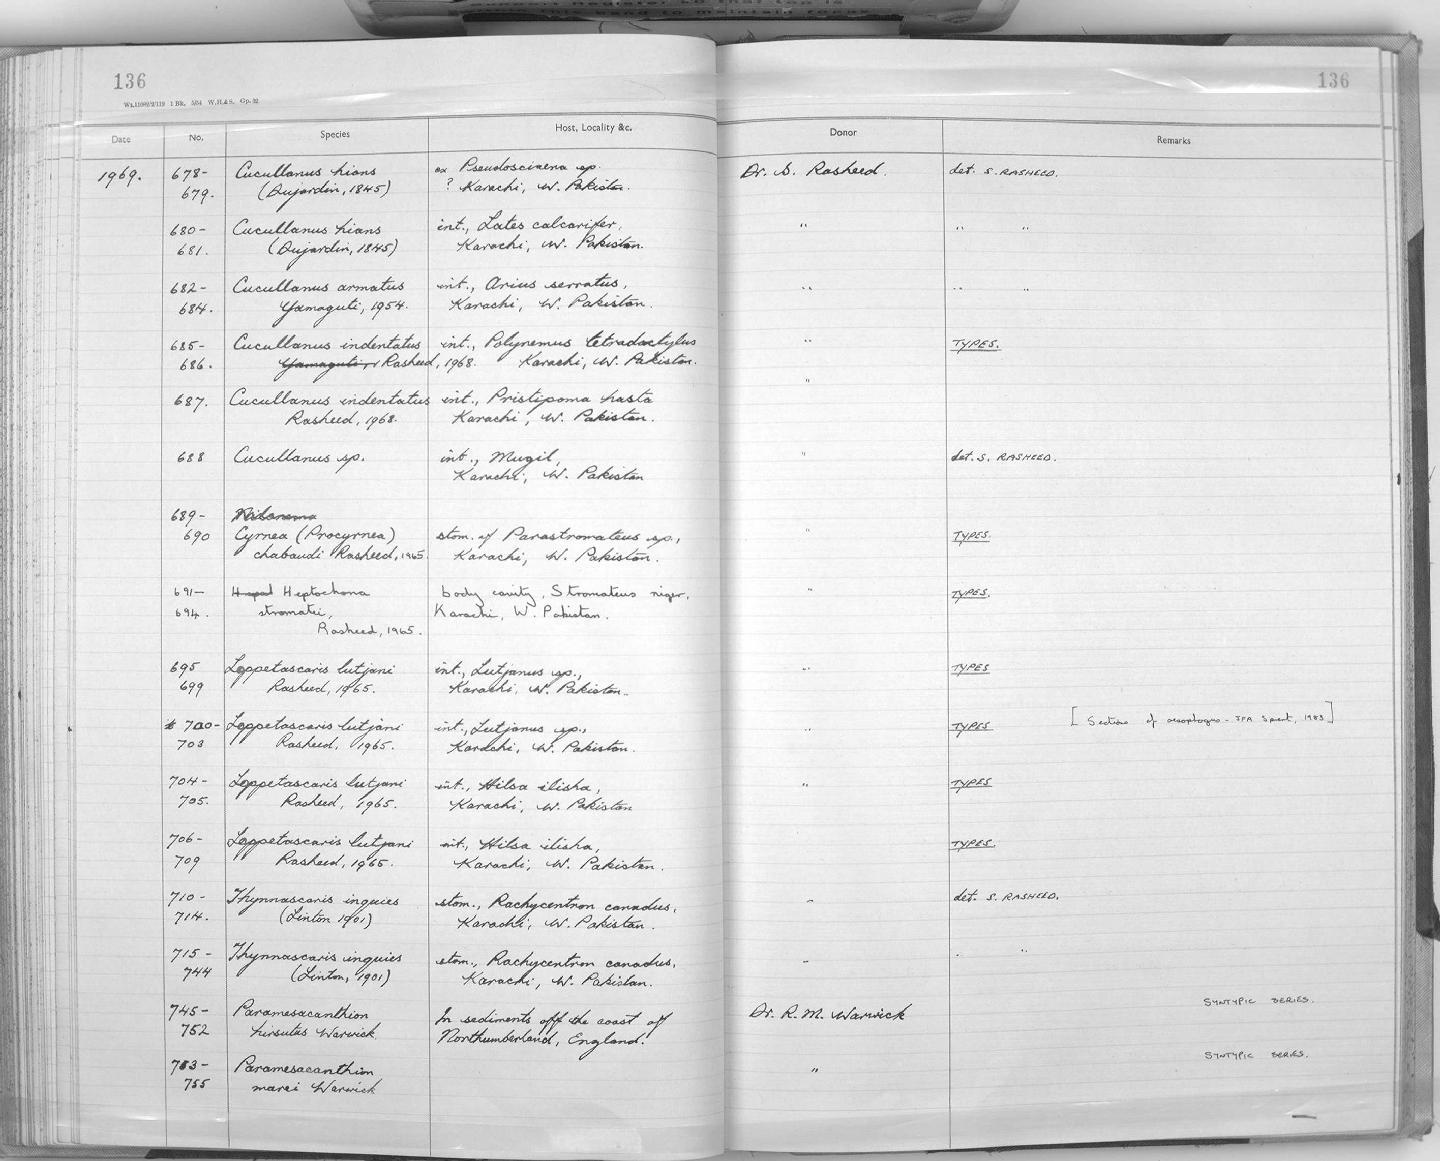 136
136
Wt.11082/2/119 1 Bk. 5/54 W.H.&S. Gp. 52
Date No. Species Host, Locality &c. Donor Remarks
1969. 678- Cucullanus hians ex Pseudosciaena sp. Dr. S. Rasheed. det. S. RASHEED.
679. (Dujardin, 1845) ? Karachi, W. Pakistan.
680- Cucullanus hians int., Lates calcarifer, " " "
681. (Dujardin, 1845) Karachi, W. Pakistan.
682- Cucullanus armatus int., Arius serratus, " " "
684. Yamaguti, 1954. Karachi, W. Pakistan.
685- Cucullanus indentatus int., Polynemus tetradactylus " TYPES.
686. Yamaguti, Rasheed, 1968. Karachi, W. Pakistan.
687. Cucullanus indentatus int., Pristipoma hasta "
Rasheed, 1968. Karachi, W. Pakistan.
688 Cucullanus sp. int., Mugil, " det. S. RASHEED.
Karachi, W. Pakistan
689-
690 Cyrnea (Procyrnea) stom. of Parastromateus sp., " TYPES.
chabaudi Rasheed, 1965. Karachi, W. Pakistan.
691- Heptochona body cavity, Stromateus niger, " TYPES.
694. stromatei, Karachi, W. Pakistan.
Rasheed, 1965.
695 Lappetascaris lutjani int., Lutjanus sp., " TYPES
699 Rasheed, 1965. Karachi, W. Pakistan.
700- Lappetascaris lutjani int., Lutjanus sp., " TYPES [Sections of oesophagus - JFA Sprent, 1983]
703 Rasheed, 1965. Karachi, W. Pakistan.
704- Lappetascaris lutjani int., Hilsa ilisha, " TYPES
705. Rasheed, 1965. Karachi, W. Pakistan
706- Lappetascaris lutjani int., Hilsa ilisha, " TYPES.
709 Rasheed, 1965. Karachi, W. Pakistan.
710- Thynnascaris inquies stom., Rachycentron canadus, " det. S. RASHEED.
714. (Linton 1901) Karachi, W. Pakistan.
715- Thynnascaris inquies stom., Rachycentron canadus, " " "
744 (Linton, 1901) Karachi, W. Pakistan.
745- Paramesacanthion In sediments off the coast of Dr. R. M. Warwick SYNTYPIC SERIES.
752 hirsutus Warwick Northumberland, England.
753- Paramesacanthion " SYNTYPIC SERIES.
755 marei Warwick